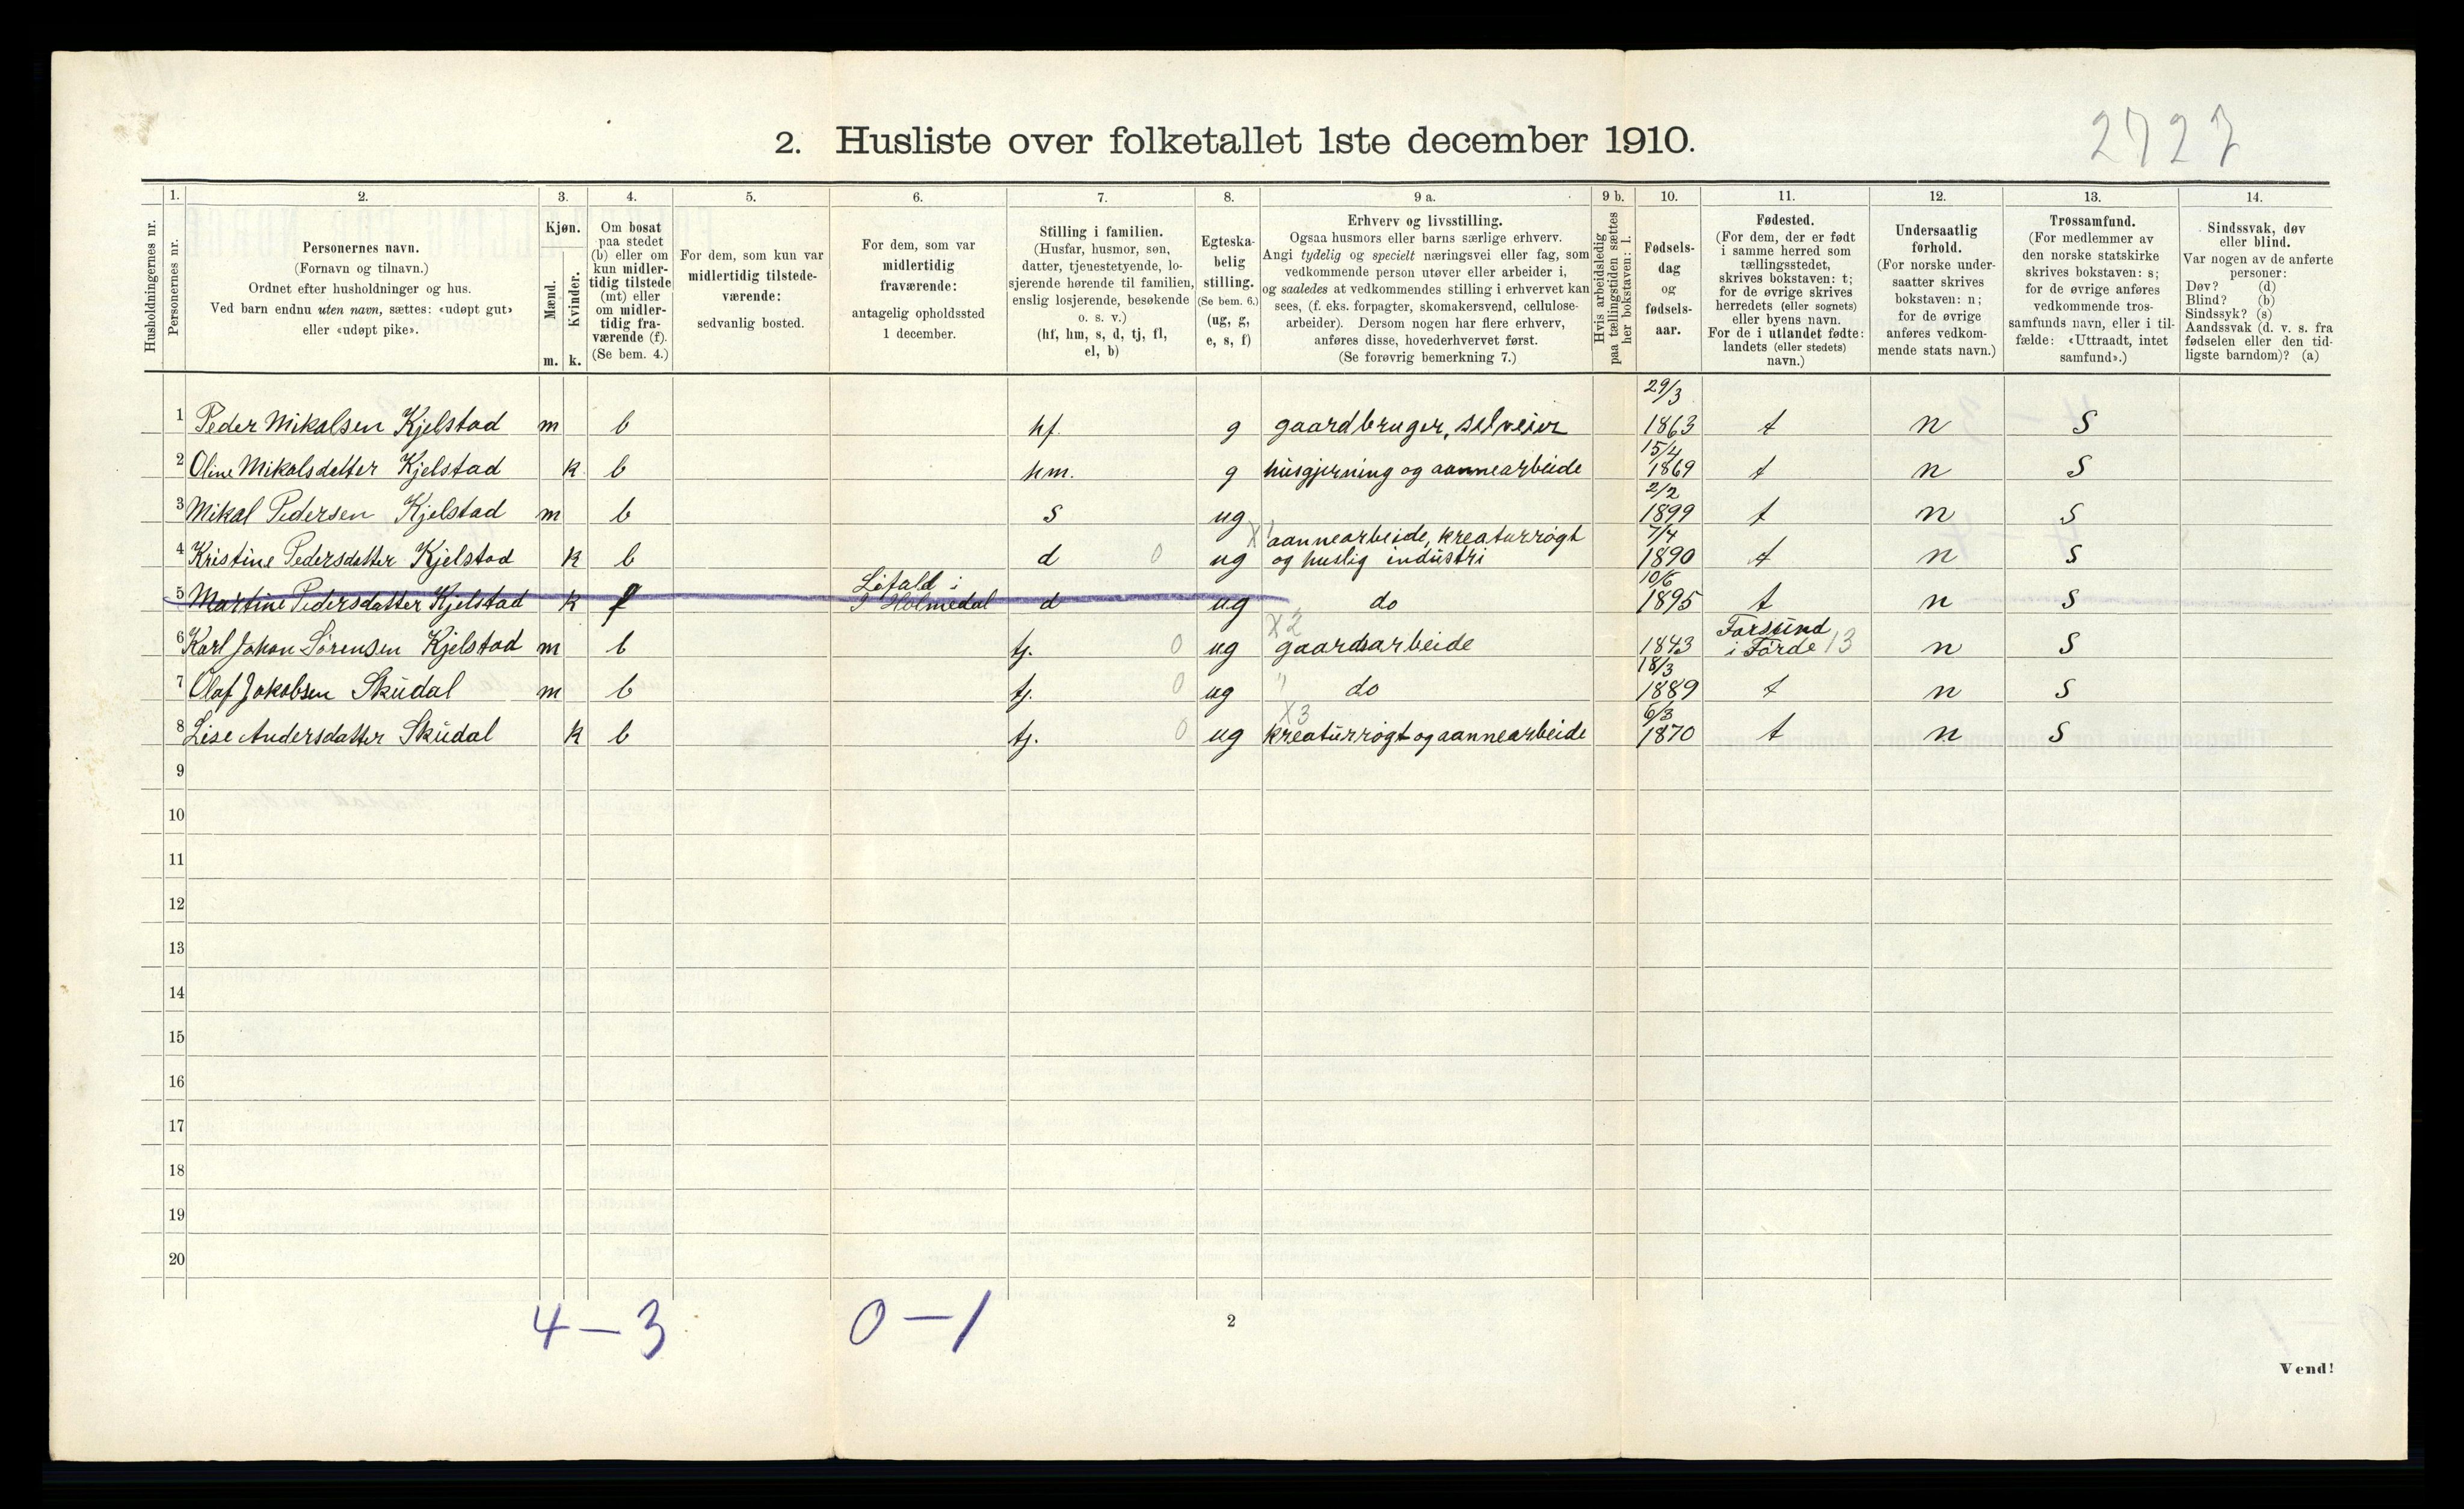 2727
2. Husliste over folketallet 1ste december 1910.
1. 2. 3. 4. 5. 6. 7. 8. 9 a. 9 b. 10. 11. 12. 13. 14.
Husholdningernes nr.
Personernes nr.
Personernes navn.
(Fornavn og tilnavn.)
Ordnet efter husholdninger og hus.
Ved barn endnu uten navn, sættes: «udøpt gut»
eller «udøpt pike».
Kjøn.
Mænd.
Kvinder.
m. k.
Om bosat
paa stedet
(b) eller om
kun midler-
tidig tilstede
(mt) eller
om midler-
tidig fra-
værende (f).
(Se bem. 4.)
For dem, som kun var
midlertidig tilstede-
værende:
sedvanlig bosted.
For dem, som var
midlertidig
fraværende:
antagelig opholdssted
1 december.
Stilling i familien.
(Husfar, husmor, søn,
datter, tjenestetyende, lo-
sjerende hørende til familien,
enslig losjerende, besøkende
o. s. v.)
(hf, hm, s, d, tj, fl,
el, b)
Egteska-
belig
stilling.
(Se bem. 6.)
(ug, g,
e, s, f)
Erhverv og livsstilling.
Ogsaa husmors eller barns særlige erhverv.
Angi tydelig og specielt næringsvei eller fag, som
vedkommende person utøver eller arbeider i,
og saaledes at vedkommendes stilling i erhvervet kan
sees, (f. eks. forpagter, skomakersvend, cellulose-
arbeider). Dersom nogen har flere erhverv,
anføres disse, hovederhvervet først.
(Se forøvrig bemerkning 7.)
Hvis arbeidsledig
paa tællingstiden sættes
her bokstaven: l.
Fødsels-
dag
og
fødsels-
aar.
Fødested.
(For dem, der er født
i samme herred som
tællingsstedet,
skrives bokstaven: t;
for de øvrige skrives
herredets (eller sognets)
eller byens navn.
For de i utlandet fødte:
landets (eller stedets)
navn.)
Undersaatlig
forhold.
(For norske under-
saatter skrives
bokstaven: n;
for de øvrige
anføres vedkom-
mende stats navn.)
Trossamfund.
(For medlemmer av
den norske statskirke
skrives bokstaven: s;
for de øvrige anføres
vedkommende tros-
samfunds navn, eller i til-
fælde: «Uttraadt, intet
samfund».)
Sindssvak, døv
eller blind.
Var nogen av de anførte
personer:
Døv? (d)
Blind? (b)
Sindssyk? (s)
Aandssvak (d. v. s. fra
fødselen eller den tid-
ligste barndom)? (a)
29/3
1 Peder Mikalsen Kjelstad m b hf. g gaardbruger, selveier 1863 t n S
15/4
2 Oline Mikalsdatter Kjelstad k b hm. g husgjerning og aannearbeide 1869 t n S
2/2
3 Mikal Pedersen Kjelstad m b s ug 1899 t n S
X1 aannearbeide, kreaturrøgt 7/4
4 Kristine Pedersdatter Kjelstad k b d 0 ug og huslig industri 1890 t n S
Løfald i 10/6
5 Martine Pedersdatter Kjelstad k f Y Holmedal d ug do 1895 t n S
X2 Farsund
6 Karl Johan Sørensen Kjelstad m b tj. 0 ug gaardsarbeide 1843 i Førde 13 n S
18/3
7 Olaf Jakobsen Skudal m b tj. 0 ug " do 1889 t n S
X3 6/3
8 Lise Andersdatter Skudal k b tj. 0 ug kreaturrøgt og aannearbeide 1870 t n S
9
10
11
12
13
14
15
16
17
18
19
20
4 — 3 0 — 1
2
Vend!